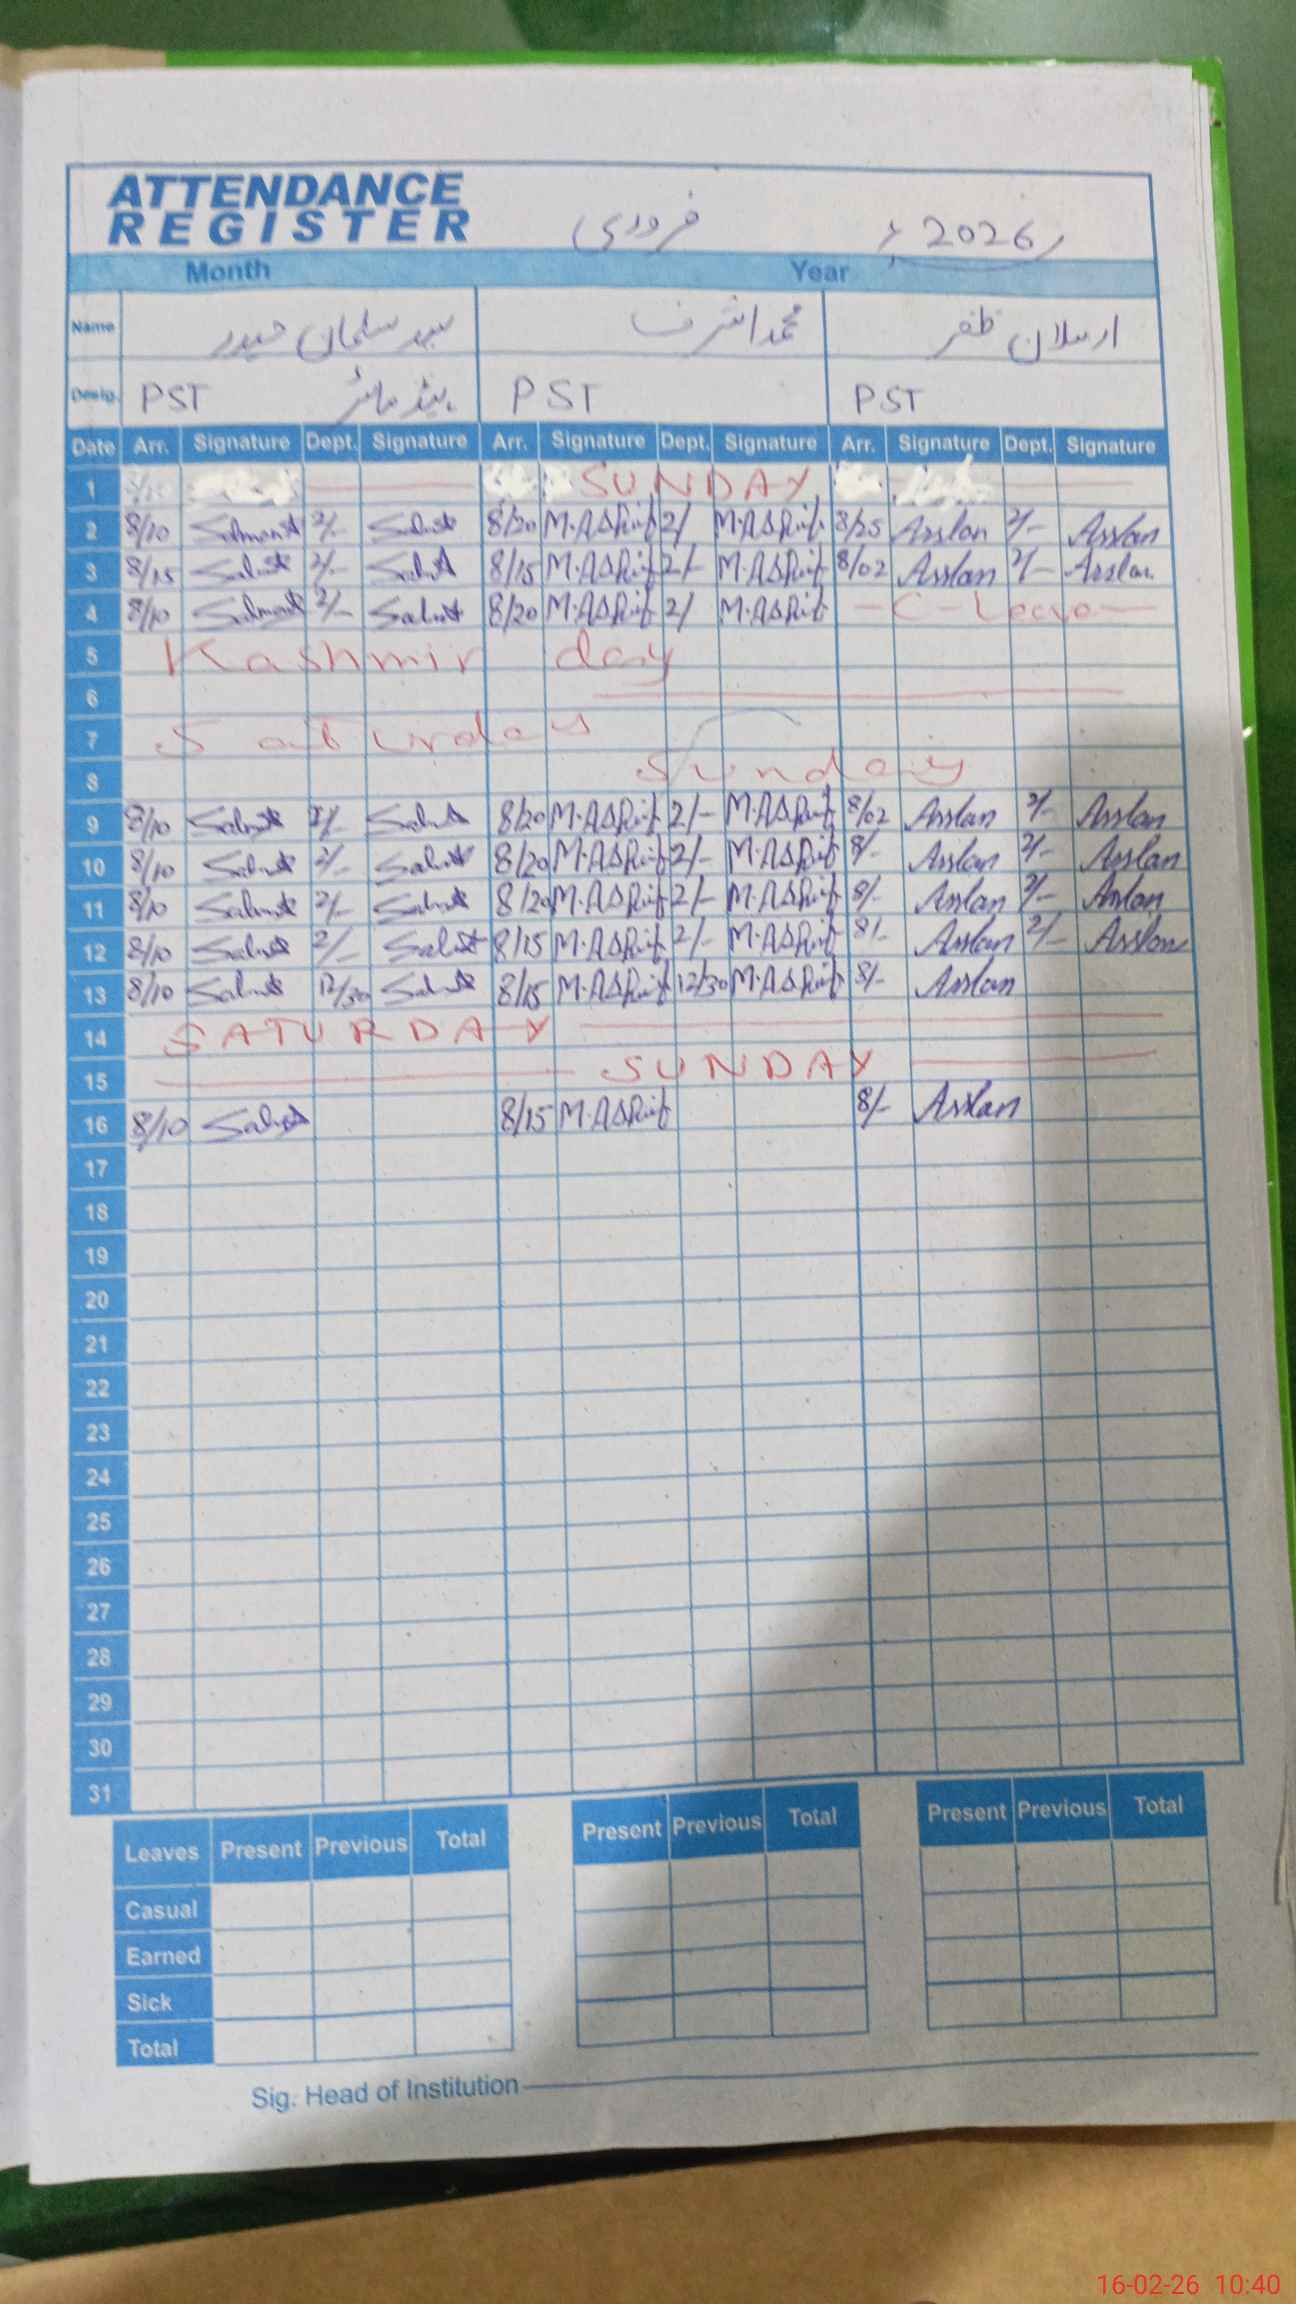 ATTENDANCE
REGISTER
فروری
2026ء
Month Year
Name سید سلمان حیدر محمد اشرف ارسلان ظفر
Desig. PST ہیڈ ماسٹر PST PST
Date Arr. Signature Dept. Signature Arr. Signature Dept. Signature Arr. Signature Dept. Signature
1 SUNDAY
2 8/10 Salman 2/- 8/20 M.AShrif 2/ M.AShrif 8/25 Arslan 2/- Arslan
3 8/15 2/- 8/15 M.AShrif 2/- M.AShrif 8/02 Arslan 2/- Arslan
4 8/10 Salman 2/- 8/20 M.AShrif 2/ M.AShrif C-Leave
5 Kashmir day
6
7 Saturday
8 Sunday
9 8/10 2/- 8/20 M.AShrif 2/- M.AShrif 8/02 Arslan 2/- Arslan
10 8/10 2/- 8/20 M.AShrif 2/- M.AShrif 8/- Arslan 2/- Arslan
11 8/10 2/- 8/20 M.AShrif 2/- M.AShrif 8/- Arslan 2/- Arslan
12 8/10 2/- 8/15 M.AShrif 2/- M.AShrif 8/- Arslan 2/- Arslan
13 8/10 12/30 8/15 M.AShrif 12/30 M.AShrif 8/- Arslan
14 SATURDAY
15 SUNDAY
16 8/10 8/15 M.AShrif 8/- Arslan
17
18
19
20
21
22
23
24
25
26
27
28
29
30
31
Leaves Present Previous Total Present Previous Total Present Previous Total
Casual
Earned
Sick
Total
Sig. Head of Institution
16-02-26 10:40